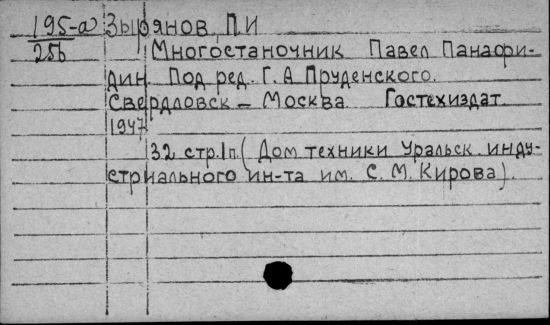 195-а Зырянов, П.И
256 Многостаночник Павел Панафи-
дин. Под ред. Г.А Пруденского.
Свердловск – Москва Гостехиздат.
1947
32 стр. 1 п. (Дом техники Уральск. инду-
стриального ин-та им. С.М. Кирова).